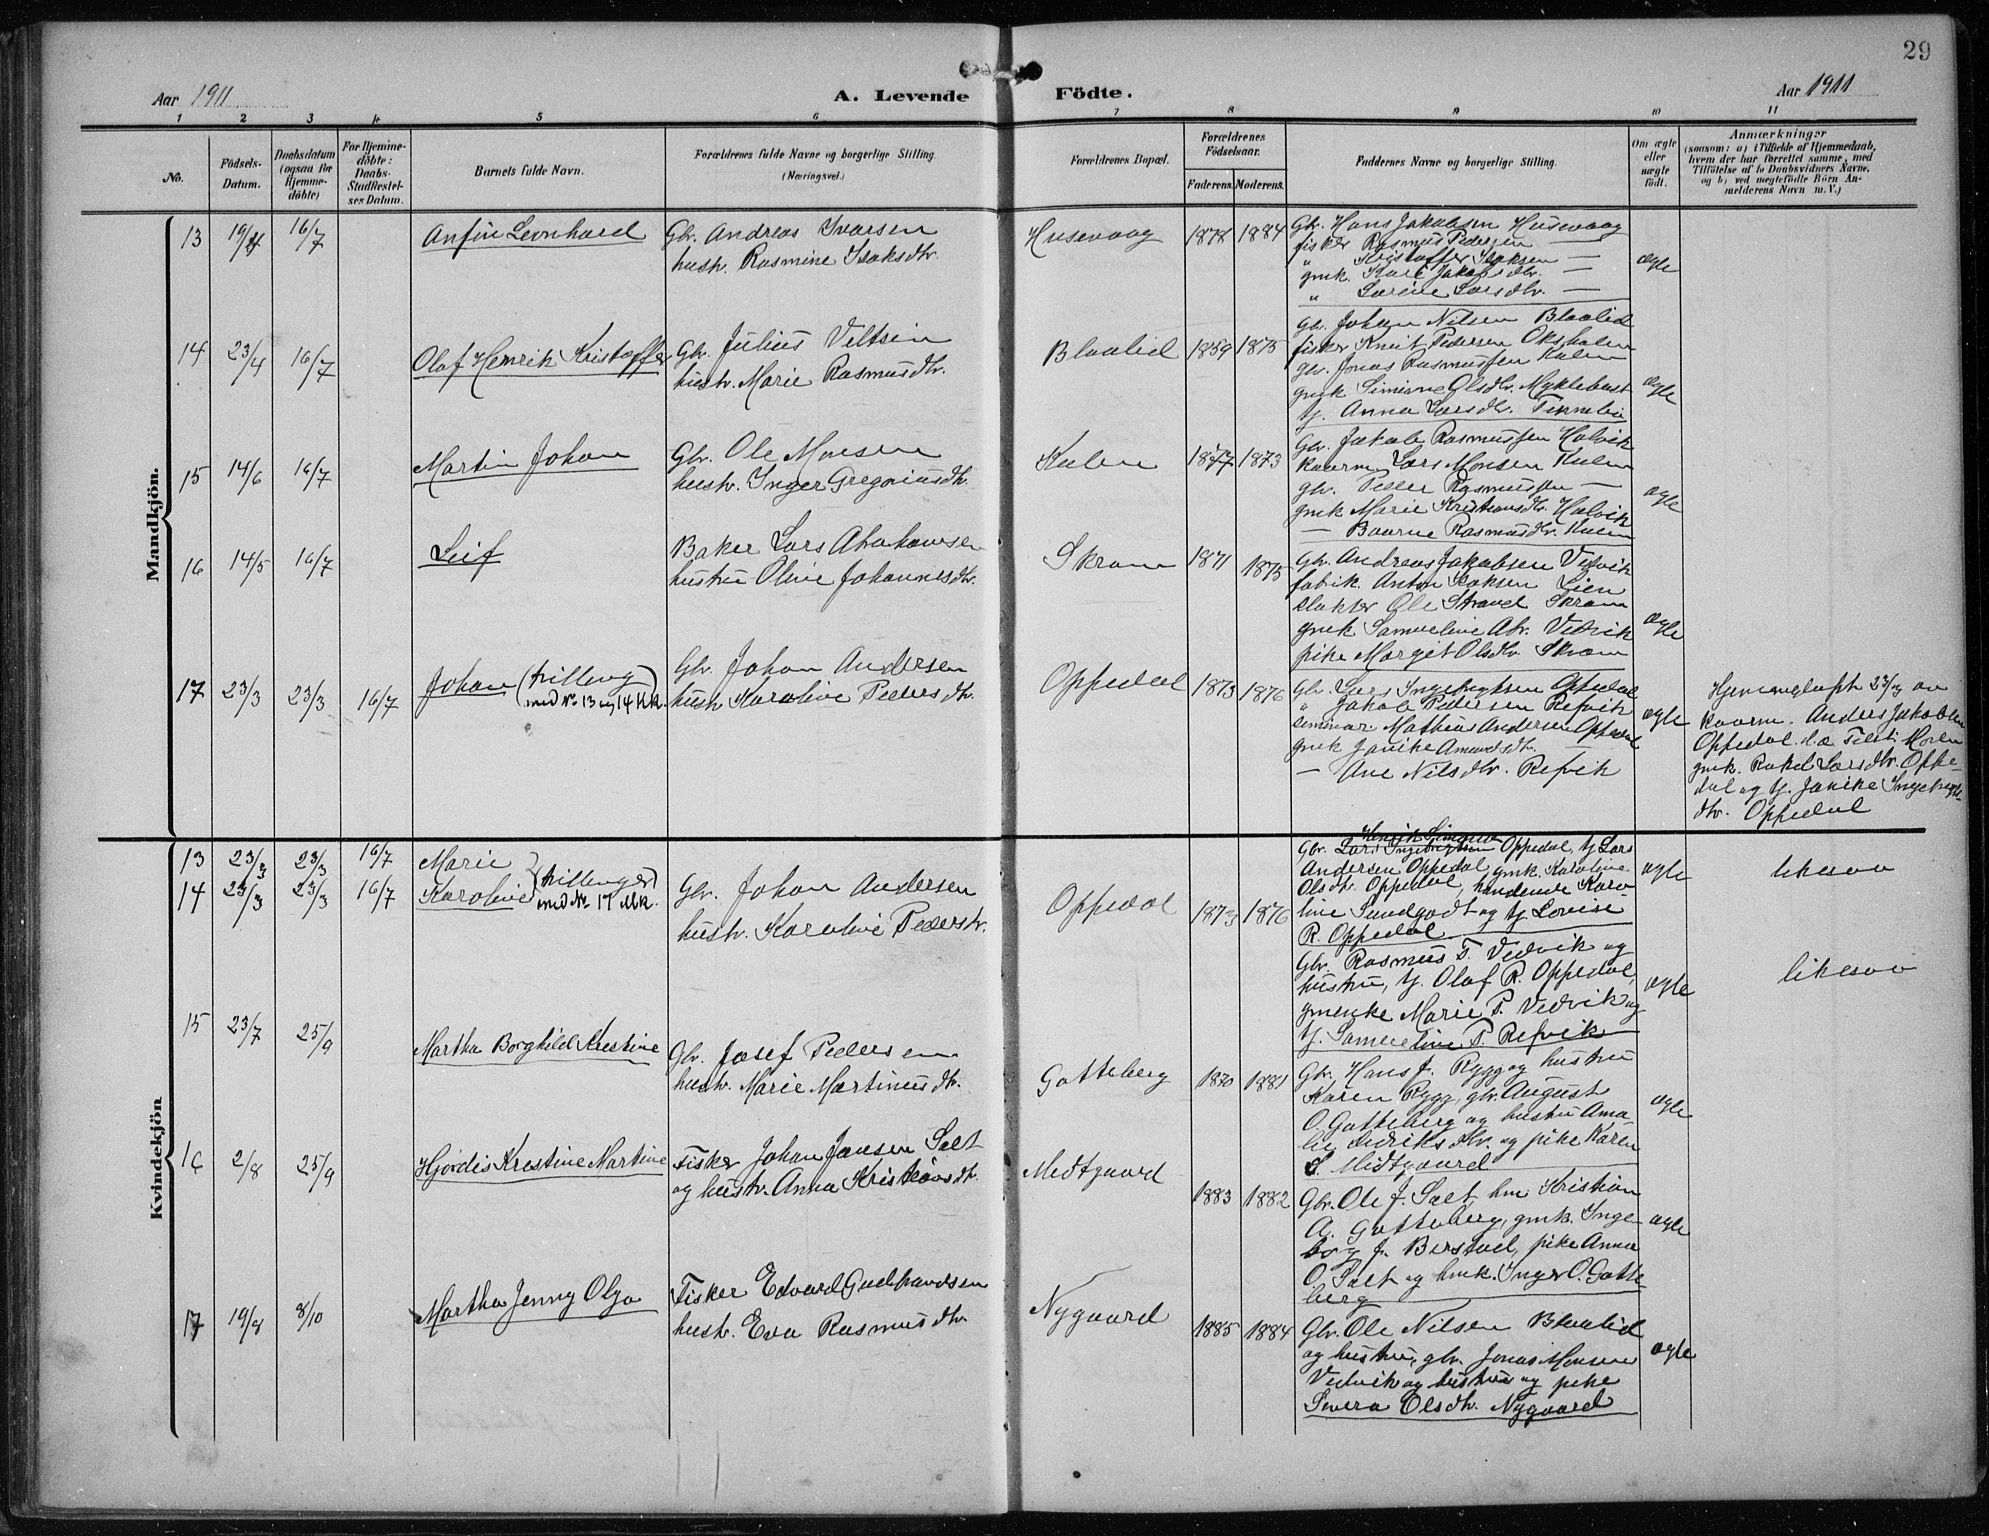 29
Aar 1911
A. Levende Födte.
Aar 1911
1 2 3 4 5 6 7 8 9 10 11
No.
Födsels-Datum.
Daabsdatum (ogsaa for Hjemme-döbte)
For Hjemme-döbte: Daabs-Stadfæstel-ses Datum.
Barnets fulde Navn.
Forældrenes fulde Navne og borgerlige Stilling.
(Næringsvei.)
Forældrenes Bopæl.
Forældrenes Födselsaar.
Faderens. Moderens.
Faddernes Navne og borgerlige Stilling.
Om ægte eller uægte födt.
Anmærkninger
(saasom: a) i Tilfælde af Hjemmedaab,
hvem der har forrettet samme, med
Tilföielse af to Daabsvidners Navne,
og b) ved uægtefödte Börn An-
melderens Navn m. V.)
Mandkjön.
13 19/4 16/7 Anfin Leonhard
Gbr. Andreas Ivarsen
hustr. Rasmine Isaksdtr.
Husevaag 1878 1884
Gbr. Hans Jakobsen Husevaag
fisker Rasmus Pedersen —
" Kristoffer Isaksen —
gmk. Kari Jakobsdtr. —
" Larsdtr. —
ægte
14 23/4 16/7 Olaf Henrik Kristoffer
Gbr. Julius
hustr. Marie Rasmusdtr.
Blaalid 1859 1875
Gbr. Johan Nilsen Blaalid
fisker Knut Pedersen
gbr. Jonas Rasmussen Kulen
gmk Olsdtr. Myklebust
tj. Anna Larsdtr.
ægte
15 14/6 16/7 Martin Johan
Gbr. Ole Monsen
hustr. Inger Gregoriusdtr.
Kulen 1877 1873
Gbr. Jakob Rasmussen Halvik
kaarm. Lars Monsen Kulen
gbr. Peder Rasmussen —
gmk Marie Kristiansdtr. Halvik
— Rasmusdtr. Kulen
ægte
16 14/5 16/7 Leif
Baker Lars Abrahamsen
hustru Olive Johannesdtr.
Skram 1871 1875
Gbr. Andreas Jakobsen Vedvik
fabrik. Anton Isaksen Lien
slakter Ole Skram
gmk Samueline Abr. Vedvik
pike Margit Olsdtr. Skram
ægte
17 23/3 23/3 16/7 Johan (trilling
med No 13 og 14 Kk.)
Gbr. Johan Andersen
hustr Karoline Pedersdtr.
Oppedal 1873 1876
Gbr. Lars Ingebrigtsen Oppedal
" Jakob Pedersen Refvik
seminar. Mathias Andersen Oppedal
gmk Janike Amundsdtr. —
— Ane Nilsdtr. Refvik
ægte
Hjemmedøpt 23/3 av
kaarm. Anders Jakobsen
Oppedal.
gmk. Rakel Larsdtr. Oppe-
dal og tj. Janike Ingebrigts-
dtr. Oppedal
Kvindekjön
13 23/3 23/3 16/7 Marie
14 23/3 23/3 16/7 Karoline (trillinger
med No 17 Mk.)
Gbr. Johan Andersen
hustr. Karoline Pedersdtr.
Oppedal 1873 1876
Gbr. Oppedal, tj Lars
Andersen Oppedal, gmk. Karoline
Olsdtr. Oppedal, handlende Karo
line Sundgodt og tj. Lovise
R. Oppedal
ægte likesaa
Gbr. Rasmus T. Vedvik og
hustru, tj. Olaf R. Oppedal,
gmenke Marie P. Vedvik og
tj. Samueline P. Refvik
ægte likesaa
15 23/7 25/9 Martha Borghild Kristine
Gbr. Josef Pedersen
hustr. Marie Martinusdtr.
Gotteberg 1870 1881
Gbr. Hans J. Rygg og hustru
Karen Rygg, gbr. August
O. Gotteberg og hustru Ama-
lie Didriksdtr. og pike Karen
S. Midtgaard
ægte
16 2/8 25/9 Hjördis Kristine Martine
Fisker Johan Jansen Salt
og hustr. Anna Kristiansdtr.
Midtgaard 1883 1882
Gbr. Ole J. Salt, hm Kristian
A. Gotteberg, gmk. Inge-
borg J. Berstad, pike Anna
O. Salt og hmk. Inger O. Gotte
berg
ægte
17 19/8 8/10 Martha Jenny Olga
Fisker Edvard Gudbrandsen
hustr. Eva Rasmusdtr.
Nygaard 1885 1884
Gbr. Ole Nilsen Blaalid
og hustru, gbr. Jonas Monsen
Vedvik og hustru og pike
Severa Olsdtr. Nygaard
ægte